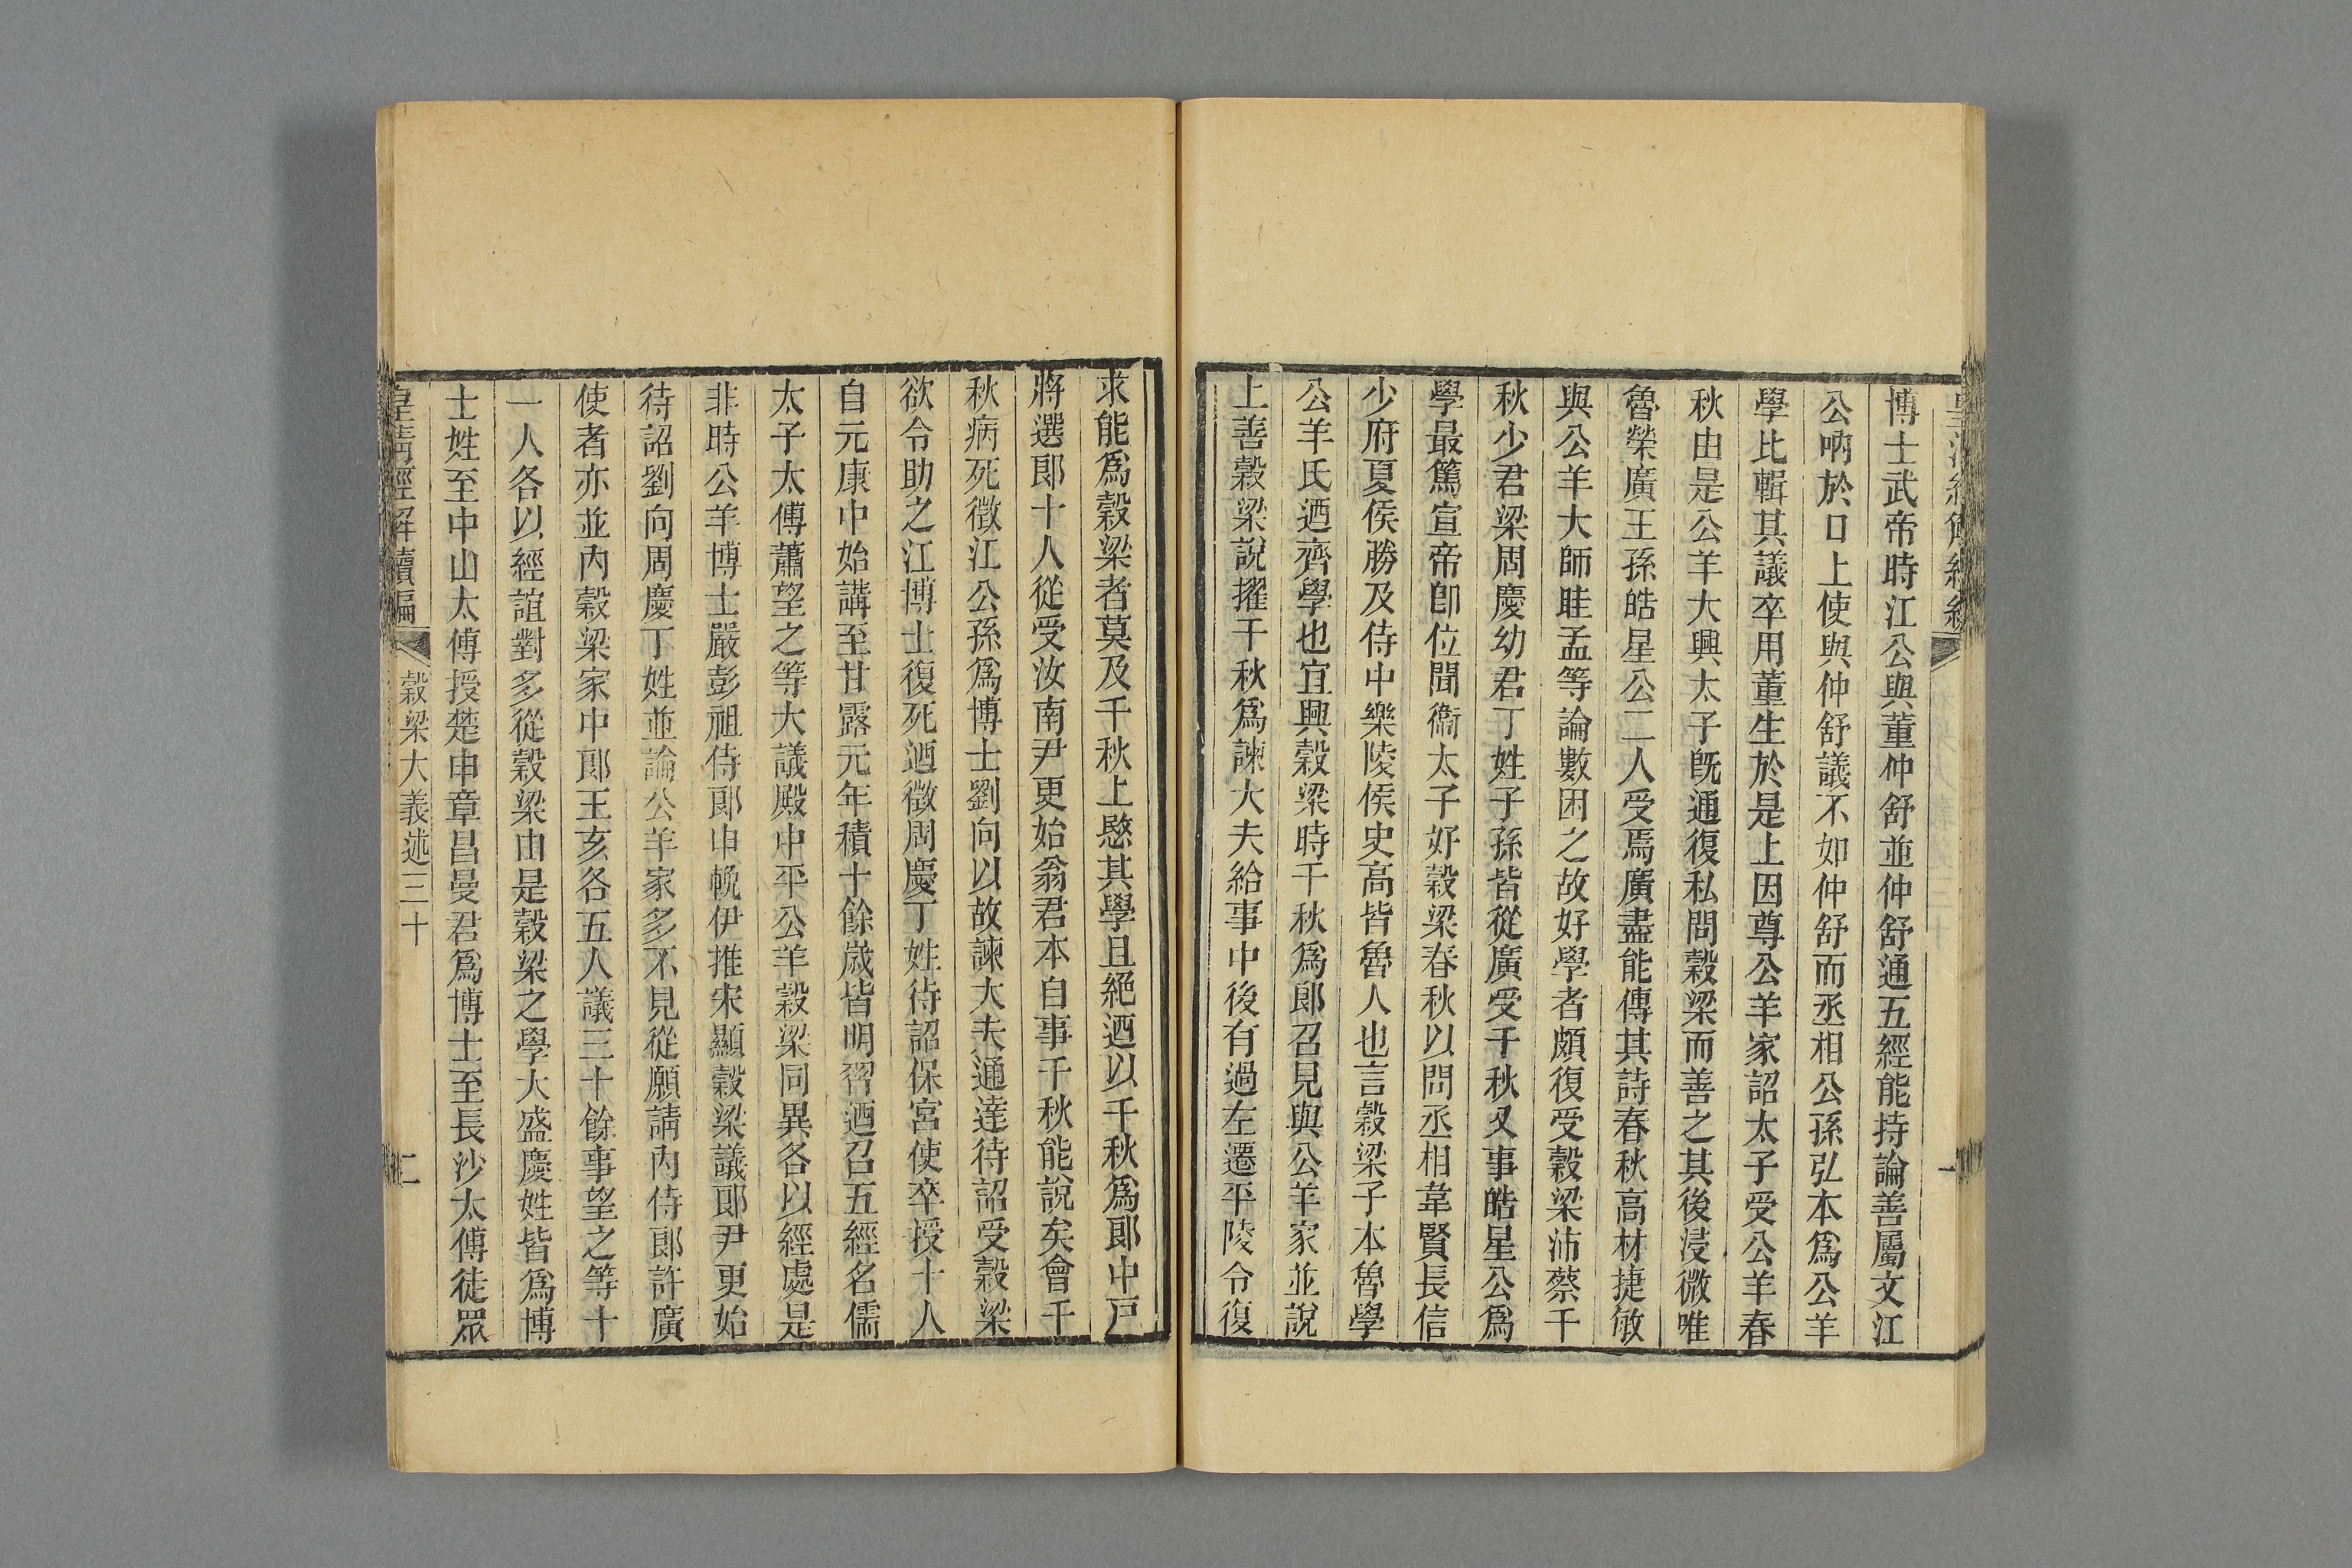 博士武帝時江公與董仲舒並仲舒通五經能持論善屬文江
公吶於口上使與仲舒議不如仲舒而丞相公孫弘本爲公羊
學比輯其議卒用董生於是上因尊公羊家詔太子受公羊春
秋由是公羊大興太子旣通復私問穀梁而善之其後浸微唯
魯榮廣王孫皓星公二人受焉廣盡能傳其詩春秋高材捷敏
與公羊大師眭孟等論數困之故好學者頗復受穀梁沛蔡千
秋少君梁周慶幼君丁姓子孫皆從廣受千秋又事皓星公爲
學最篤宣帝卽位聞衞太子好穀梁春秋以問丞相韋賢長信
少府夏侯勝及侍中樂陵侯史高皆魯人也言穀梁子本魯學
公羊氏迺齊學也宜興穀梁時千秋爲郎召見與公羊家並說
上善穀梁說擢千秋爲諫大夫給事中後有過左遷平陵令復
求能爲穀梁者莫及千秋上愍其學且絕迺以千秋爲郎中戶
將選郎十人從受汝南尹更始翁君本自事千秋能說矣會千
秋病死徵江公孫爲博士劉向以故諫大夫通達待詔受穀梁
欲令助之江博士復死迺徵周慶丁姓待詔保宮使卒授十人
自元康中始講至甘露元年積十餘歲皆明習迺召五經名儒
太子太傅蕭望之等大議殿中平公羊穀梁同異各以經處是
非時公羊博士嚴彭祖侍郎申輓伊推宋顯穀梁議郎尹更始
待詔劉向周慶丁姓並論公羊家多不見從願請內侍郎許廣
使者亦並內穀梁家中郎王亥各五人議三十餘事望之等十
一人各以經誼對多從穀梁由是穀梁之學大盛慶姓皆爲博
士姓至中山太傅授楚申章昌曼君爲博士至長沙太傅徒眾
皇淸經解續編 穀梁大義述三十 二